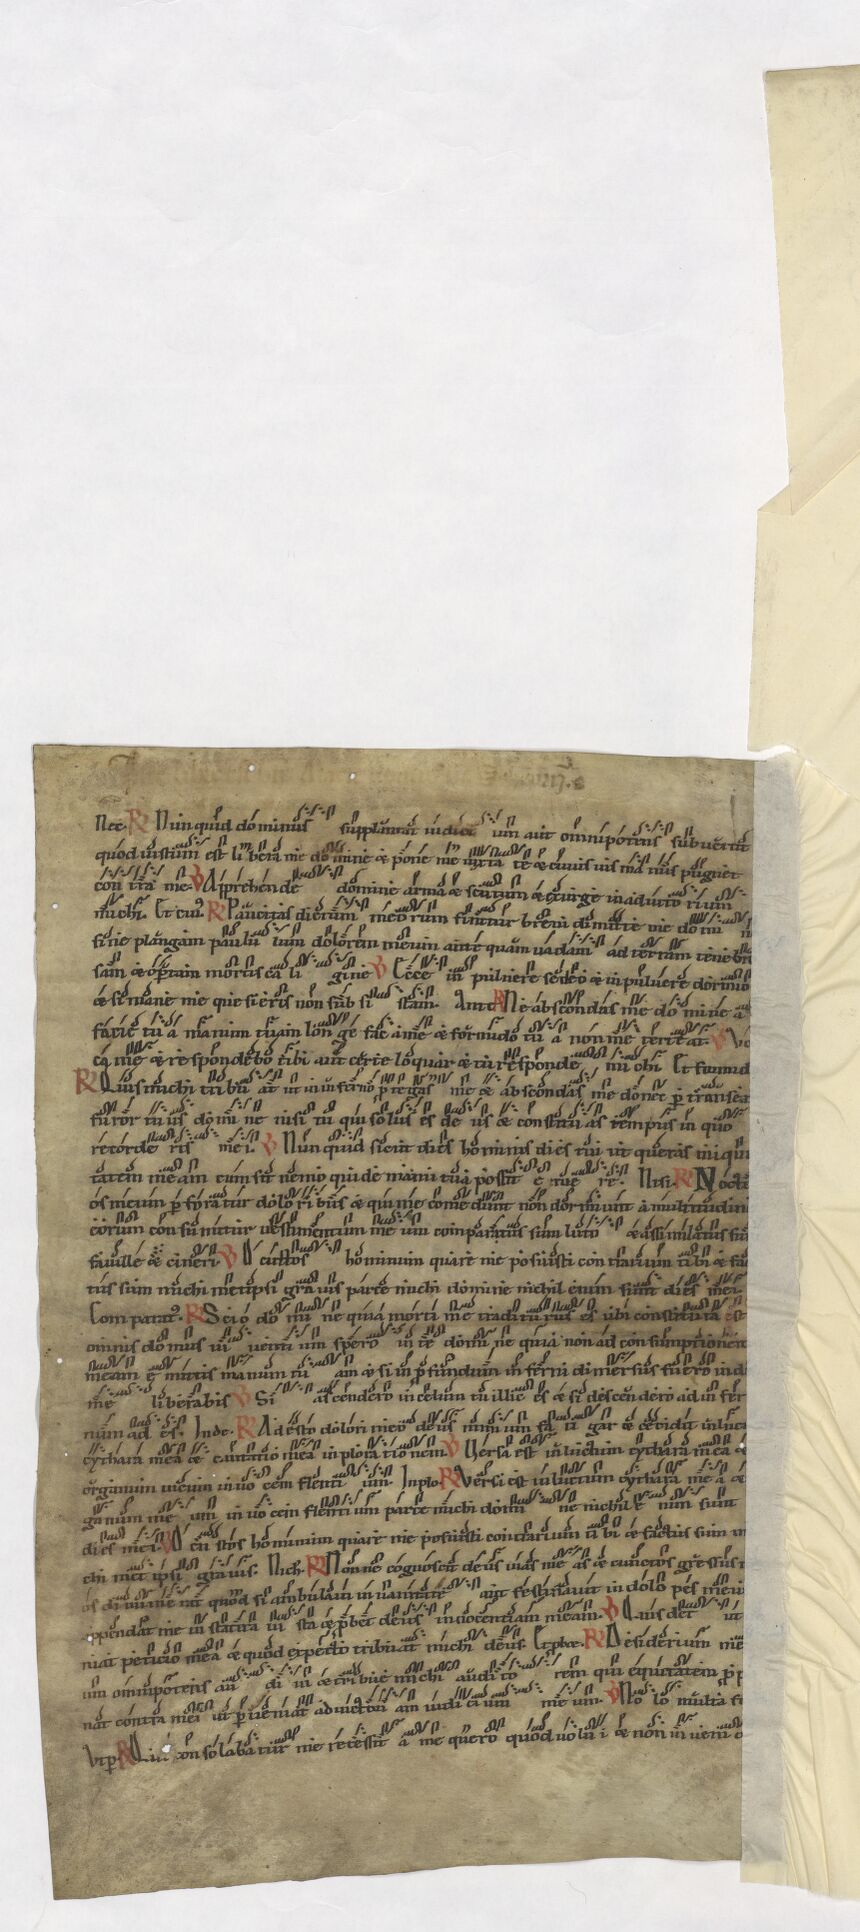 Nec. R Nunquid dominus supplantat iudici um aut omnipotens subuertit
quod iustum est libera me domine & pone me iuxta te & cuiuis uis manus pugnet
contra me. V Apprehende domine arma & scutum & exurge in adiutorium
michi. Et cui9 R Paucitas dierum meorum finitur breui dimitte me domi n
sine plangam paululum dolorem meum ante quam uadam ad terram tenebro
sam & optam mortis caligine V Ecce in puluere sedeo & in puluere dormio
& si mane me quesieris non subsistam. Ante R Ne abscondas me domine a
facie tua manum tuam longe fac a me & formido tua non me terreat V
ca me & respondebo tibi aut certe loquar & tu responde michi Et formid
R Quis michi tribuat ut in inferno protegas me & abscondas me donec pertranseat
furor tuus domine nisi tu qui solus es deus & constituas tempus in quo
recorderis mei. V Nunquid sicut dies hominis dies tui ut queras iniqui
tatem meam cum sit nemo qui de manu tua possit eruere. Nisi R Nocte
os meum perforatur doloribus & qui me comedunt non dormiunt a multitudine
eorum consumitur uestimentum meum comparatus sum luto & assimilatus su
fauille & cineri. V O custos hominum quare me posuisti contrarium tibi & fac
tus sum michi metipsi grauis parce michi domine nichil enim sunt dies mei
Comparat9. R Scio domine quia morti me traditurus es ubi constituta est
omnis domus uiuentium spero in te domine quia non ad consumptionem
meam emittis manum tuam & si in profundum inferni dimersus fuero inde
me liberabis V Si ascendero in celum tu illic es & si descendero ad infer
num ades. Inde. R Adesto dolori meo deus nimium fatigar & cecidit in luct
cythara mea & cantatio mea in plorationem. V Uersa est in luctum cythara mea &
organum meum in uocem flentium. Inplo. R Versi est in luctum cythara mea & or
ganum meum in uocem flentium parce michi domine nichil enim sunt
dies mei. V O custos hominum quare me posuisti contrarium tibi & factus sum m
chi met ipsi grauis. Nich. R Nonne cognoscit deus uias meas & cunctos gressus
os dinumerat quod si ambulaui in uanitate aut festinauit in dolo pes meus
appendat me in statera iusta & probet deus innocentiam meam. V Quis det ut
niat peticio mea & quod expecto tribuat michi deus. Et pbe. R Desiderium me
um omnipotens audi ui & tribue michi auditorem qui equitatem pro
nat contra mei ut perueniat ad uictoriam iudicium meum. V Nolo multa fo
Vt p R Qui consolabatur me recessit a me quero quod uolui & non inuenio